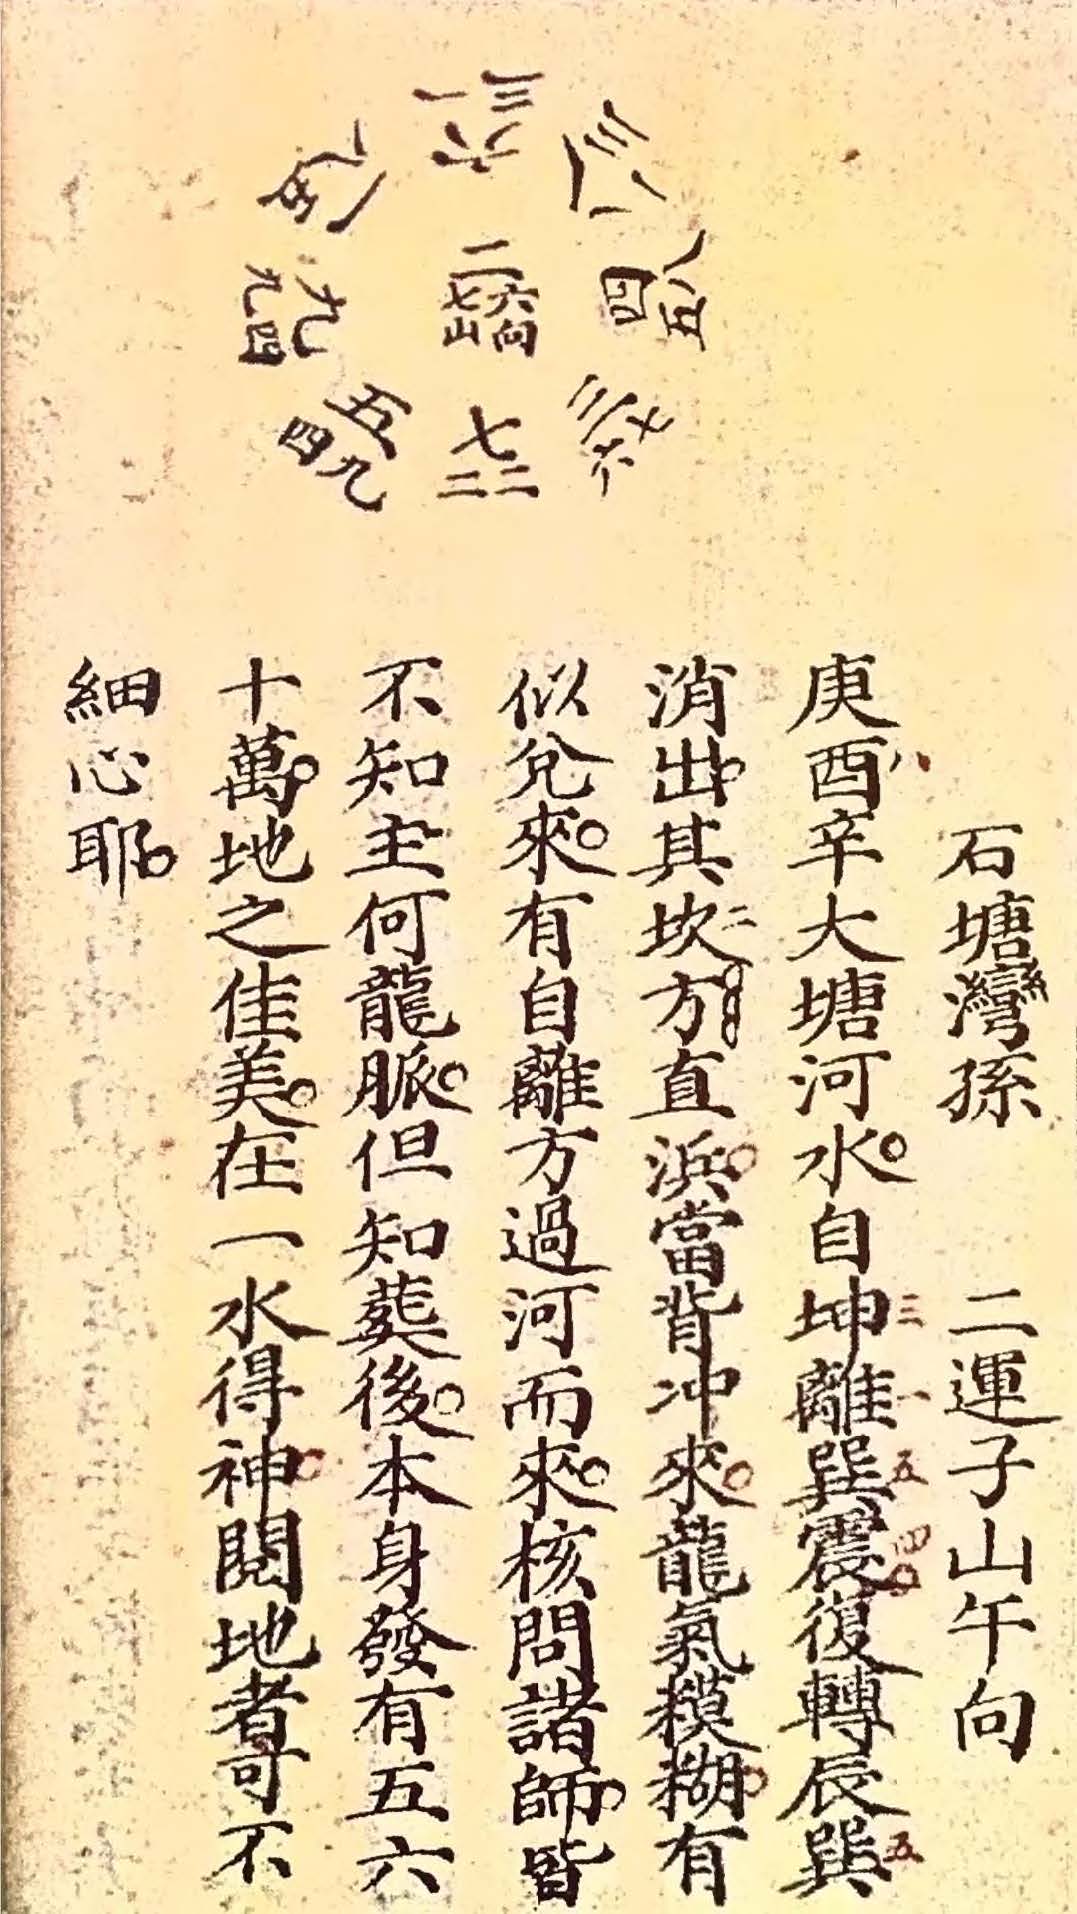 一三
六
一八五
三八一
九九四
二
七山
六向
八五四
五四九
七
二二
三七六
石塘灣孫 二運子山午向
庚酉辛大塘河水自坤離巽震復轉辰巽
八 三 一 五 四 五
消出其坎方直浜當背冲來龍氣糢糊有
二
似兌來有自離方過河而來核問諸師皆
不知主何龍脈但知葬後本身發有五六
十萬地之佳美在一水得神閱地者可不
細心耶